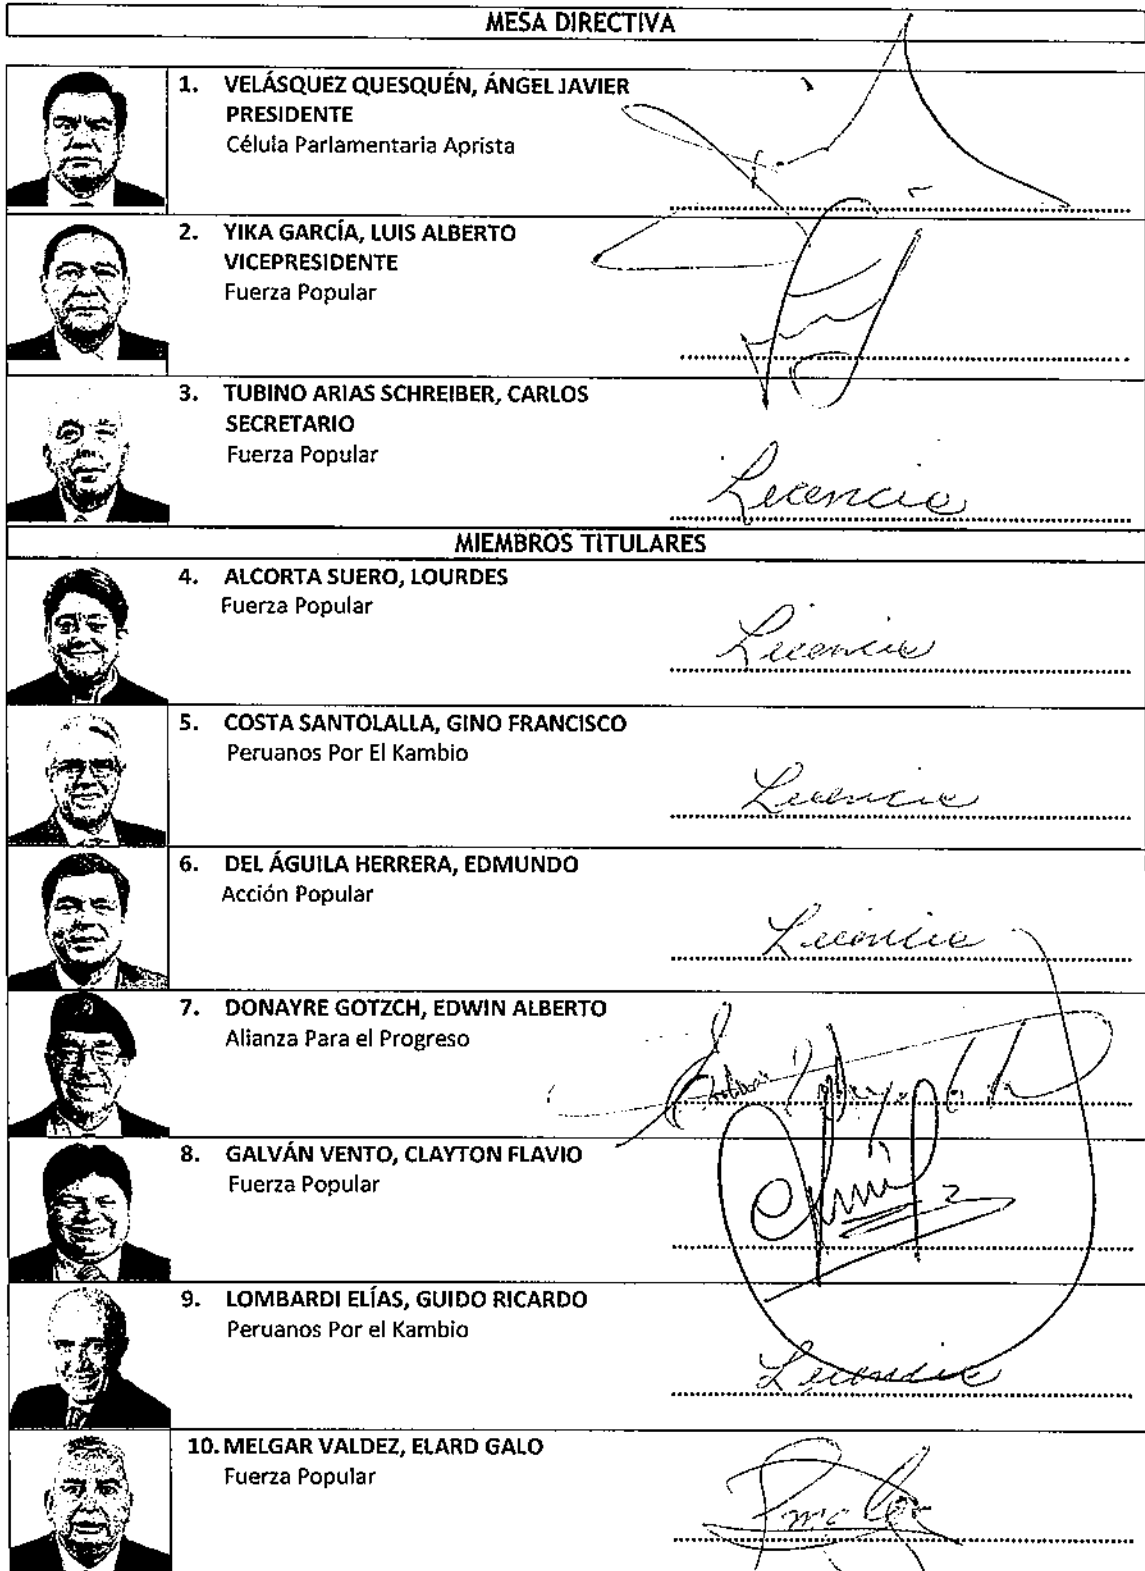 MESA DIRECTIVA
1. VELÁSQUEZ QUESQUÉN, ÁNGEL JAVIER
PRESIDENTE
Célula Parlamentaria Aprista
2. YIKA GARCÍA, LUIS ALBERTO
VICEPRESIDENTE
Fuerza Popular
3. TUBINO ARIAS SCHREIBER, CARLOS
SECRETARIO
Fuerza Popular
Licencia
MIEMBROS TITULARES
4. ALCORTA SUERO, LOURDES
Fuerza Popular
Licencia
5. COSTA SANTOLALLA, GINO FRANCISCO
Peruanos Por El Kambio
Licencia
6. DEL ÁGUILA HERRERA, EDMUNDO
Acción Popular
Licencia
7. DONAYRE GOTZCH, EDWIN ALBERTO
Alianza Para el Progreso
8. GALVÁN VENTO, CLAYTON FLAVIO
Fuerza Popular
9. LOMBARDI ELÍAS, GUIDO RICARDO
Peruanos Por el Kambio
Licencia
10. MELGAR VALDEZ, ELARD GALO
Fuerza Popular